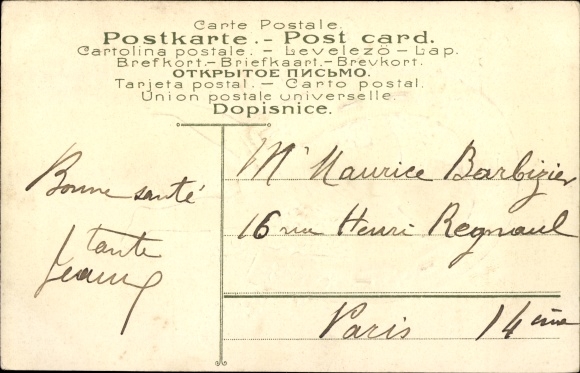 Carte Postale.
Postkarte. - Post card.
Cartolina postale. - Levelező - Lap.
Brefkort. - Briefkaart. - Brevkort.
ОТКРЫТОЕ ПИСЬМО.
Tarjeta postal. - Carto postal.
Union postale universelle.
Dopisnice.
Bonne santé
tante
Jeanne
Mr Maurice Barbizier
16 rue Henri Regnault
Paris 14ème